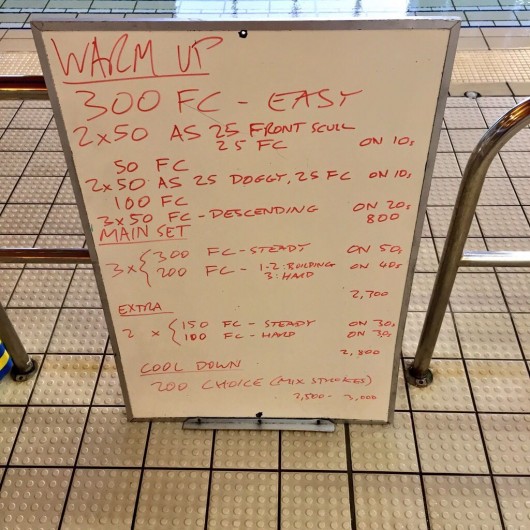 WARM UP
300 FC - EASY
2x50 AS 25 FRONT SCULL
25 FC ON 10s
50 FC
2x50 AS 25 DOGGY, 25 FC ON 10s
100 FC
2x50 FC - DESCENDING ON 20s
800
MAIN SET
3x { 300 FC - STEADY ON 50s
200 FC - 1-2: BUILDING ON 40s
3: HARD
2,700
EXTRA
2 x { 150 FC - STEADY ON 30s
100 FC - HARD ON 30s
2,800
COOL DOWN
200 CHOICE (MIX STROKES)
2,500 - 3,000